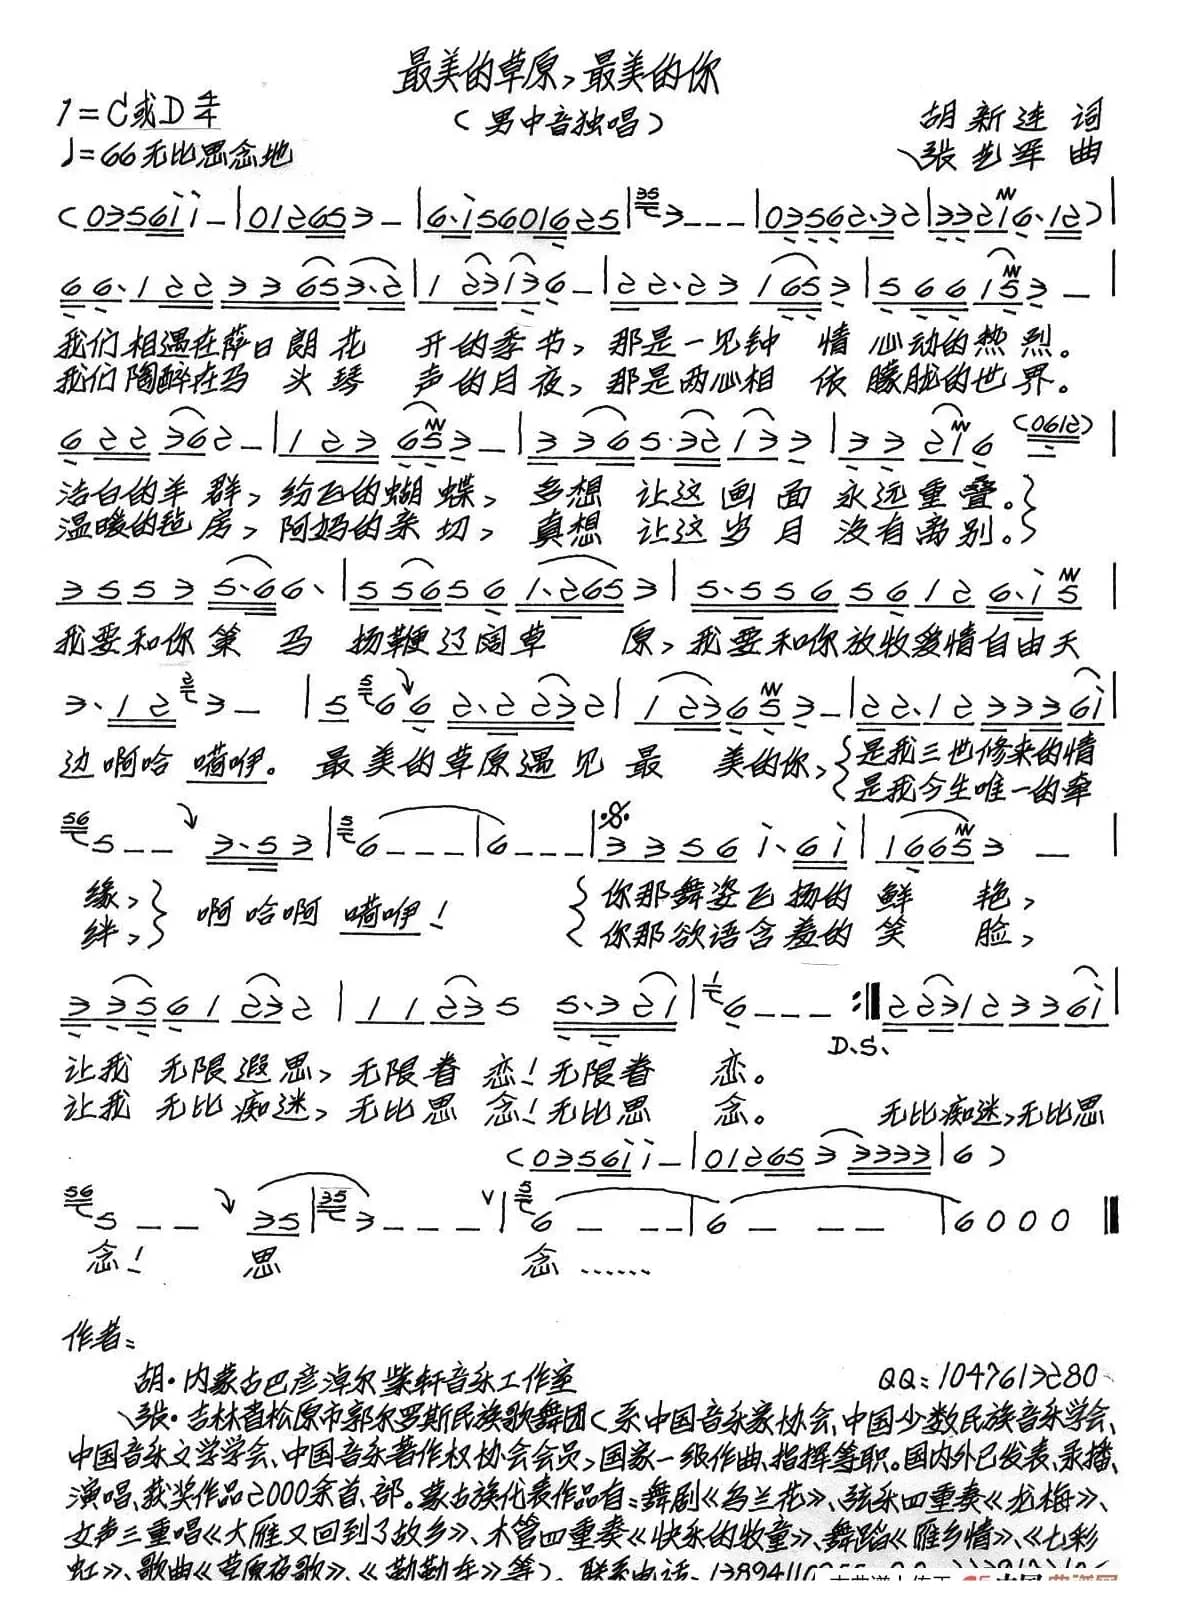 最美的草原，最美的你
（男中音独唱）
1=C或D 4/4
♩=66 无比思念地
胡新连 词
张艺军 曲
（0356i i－|012653－|6·i56016625|3－－－|03562·32|3321 6·12）|
66·122 33653·2|1 23136－|22·23 1653|5661 53－|
我们相遇在萨日朗花 开的季节，那是一见钟 情 心动的热烈。
我们陶醉在马 头琴 声的月夜，那是两心相 依 朦胧的世界。
622362－|123 653－|3365·32133|33216（0612）|
洁白的羊群，纷飞的蝴蝶，多想 让这画面永远重叠。}
温暖的毡房，阿妈的亲切，真想 让这岁月没有离别。}
3553 5·66·|556561·2653|5·55656126·i5|
我要和你策 马 扬鞭辽阔草 原，我要和你放牧爱情自由天
3·1 2 3－|5 6 6 2·2232|1 23653－|22·1233361|
边啊哈 嗬咿。最美的草原遇见最 美的你，{是我三世修来的情
{是我今生唯一的牵
5－－ 3·53|6－－－|6－－－|3356i·6i|16653－|
缘，} 啊哈啊 嗬咿！ {你那舞姿飞扬的鲜 艳，
绊，} {你那欲语含羞的笑 脸，
33561232|112355·321|6－－－:‖22312336i|
D.S.
让我 无限遐思，无限眷 恋！无限眷 恋。
让我 无比痴迷，无比思 念！无比思 念。 无比痴迷，无比思
（0356i i－|0126533333|6）
5－－ 35|3－－－－|6－－－|6－－－|6000‖
念！ 思 念……
作者：
胡·内蒙古巴彦淖尔紫轩音乐工作室 QQ：1047613280
张·吉林省松原市郭尔罗斯民族歌舞团（系中国音乐家协会、中国少数民族音乐学会、
中国音乐文学学会、中国音乐著作权协会会员，国家一级作曲、指挥等职。国内外已发表、录播、
演唱、获奖作品2000余首、部。蒙古族代表作品有：舞剧《乌兰花》、弦乐四重奏《龙梅》、
女声三重唱《大雁又回到了故乡》、木管四重奏《快乐的牧童》、舞蹈《雁乡情》、《七彩
虹》、歌曲《草原夜歌》、《勒勒车》等）。联系电话：